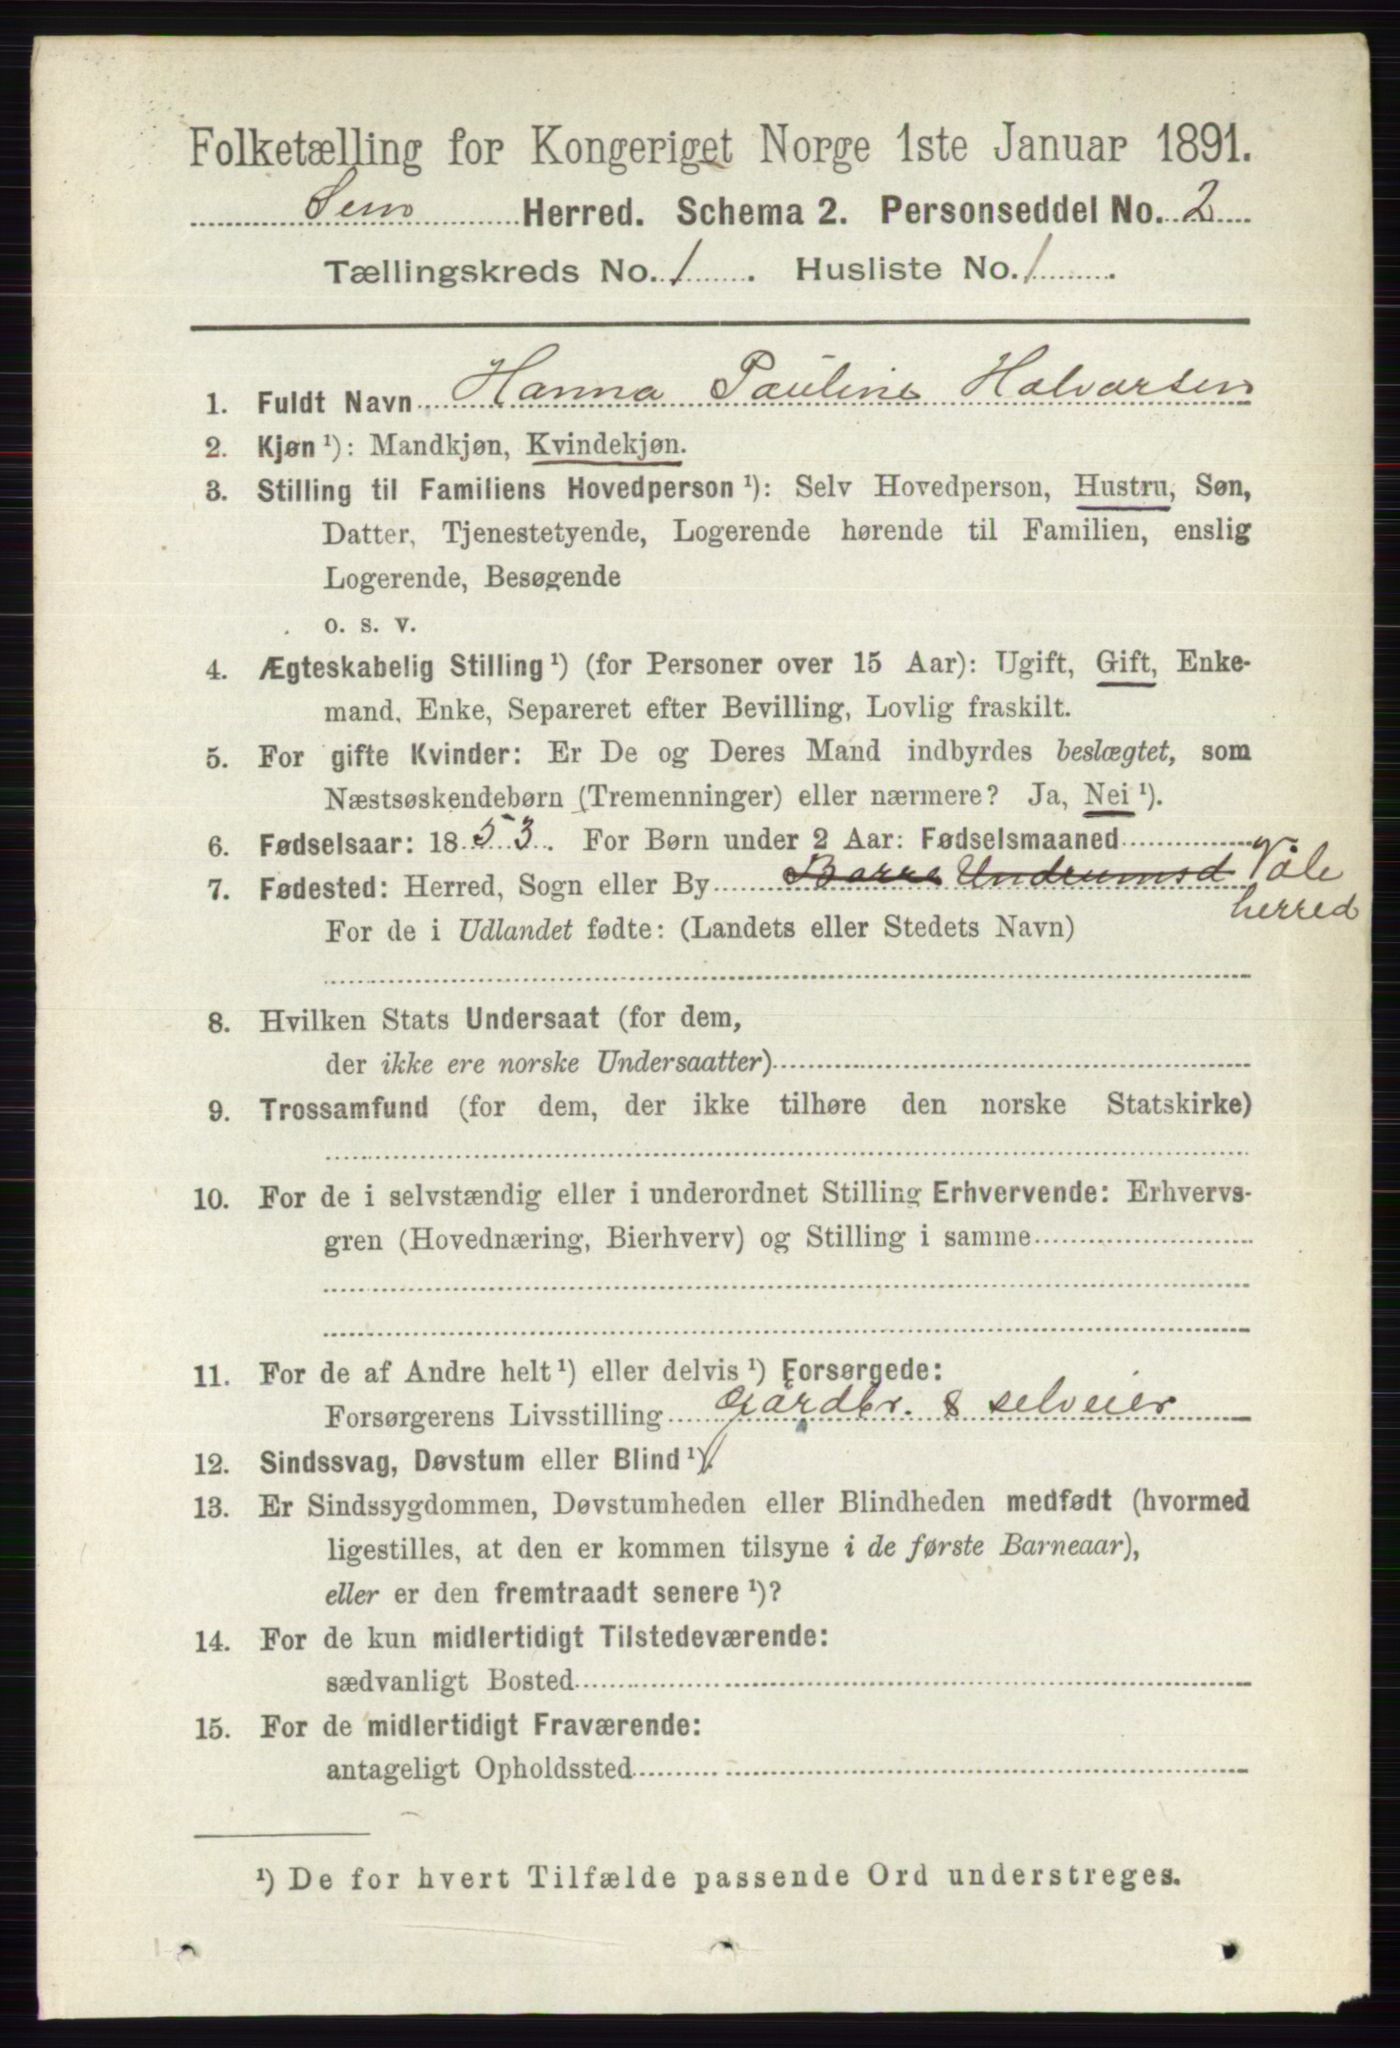 Folketælling for Kongeriget Norge 1ste Januar 1891.
Sem Herred. Schema 2. Personseddel No. 2
Tællingskreds No. 1. Husliste No. 1.
1. Fuldt Navn Hanna Pauline Halvorsen
2. Kjøn ¹): Mandkjøn, Kvindekjøn.
3. Stilling til Familiens Hovedperson ¹): Selv Hovedperson, Hustru, Søn,
Datter, Tjenestetyende, Logerende hørende til Familien, enslig
Logerende, Besøgende
o. s. v.
4. Ægteskabelig Stilling ¹) (for Personer over 15 Aar): Ugift, Gift, Enke-
mand, Enke, Separeret efter Bevilling, Lovlig fraskilt.
5. For gifte Kvinder: Er De og Deres Mand indbyrdes beslægtet, som
Næstsøskendebørn (Tremenninger) eller nærmere? Ja, Nei ¹).
6. Fødselsaar: 1853. For Børn under 2 Aar: Fødselsmaaned
7. Fødested: Herred, Sogn eller By Borre Undrumsd Våle
herred
For de i Udlandet fødte: (Landets eller Stedets Navn)
8. Hvilken Stats Undersaat (for dem,
der ikke ere norske Undersaatter)
9. Trossamfund (for dem, der ikke tilhøre den norske Statskirke)
10. For de i selvstændig eller i underordnet Stilling Erhvervende: Erhvervs-
gren (Hovednæring, Bierhverv) og Stilling i samme
11. For de af Andre helt ¹) eller delvis ¹) Forsørgede:
Forsørgerens Livsstilling Gårdbr. & selveier
12. Sindssvag, Døvstum eller Blind ¹).
13. Er Sindssygdommen, Døvstumheden eller Blindheden medfødt (hvormed
ligestilles, at den er kommen tilsyne i de første Barneaar),
eller er den fremtraadt senere ¹)?
14. For de kun midlertidigt Tilstedeværende:
sædvanligt Bosted
15. For de midlertidigt Fraværende:
antageligt Opholdssted
¹) De for hvert Tilfælde passende Ord understreges.